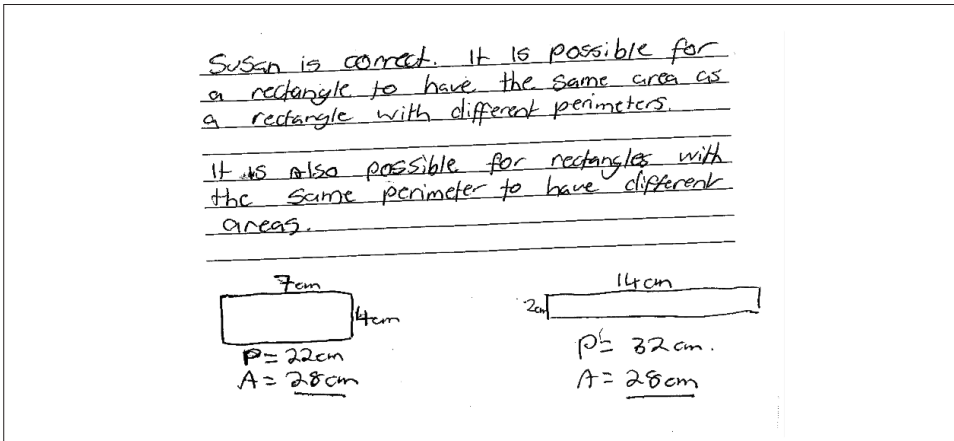 Susan is correct. It is possible for
a rectangle to have the same area as
a rectangle with different perimeters.
It is also possible for rectangles with
the same perimeter to have different
areas.
7cm
4cm
P = 22cm
A = 28cm
14cm
2cm
P = 32cm.
A = 28cm